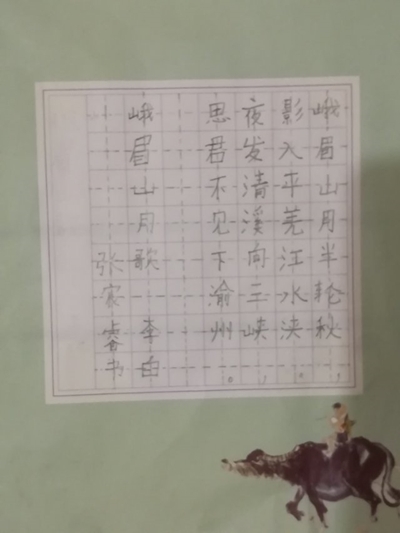 峨眉山月半轮秋，
影入平羌江水流。
夜发清溪向三峡，
思君不见下渝州。
峨眉山月歌 李白
张家睿书